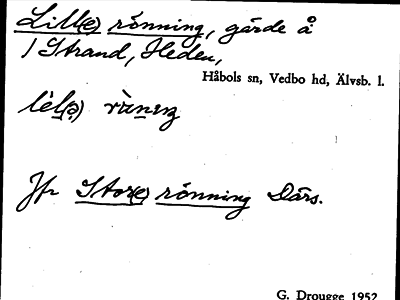 Lill(e) rönning, gärde å
1 Strand, Heden,
Håbols sn, Vedbo hd, Älvsb. l.
Jfr Stor(e) rönning Därs.
G. Drougge 1952